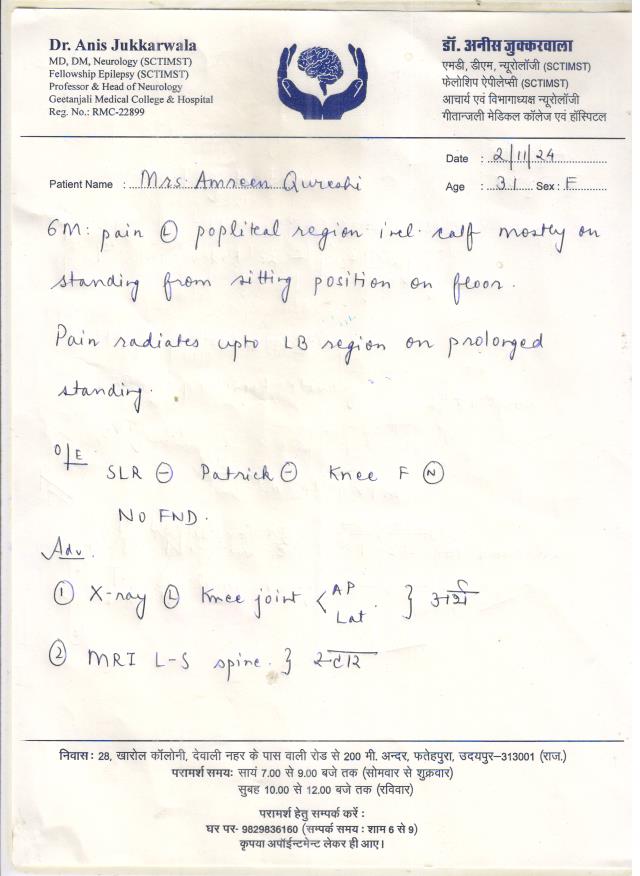 Dr. Anis Jukkarwala
MD, DM, Neurology (SCTIMST)
Fellowship Epilepsy (SCTIMST)
Professor & Head of Neurology
Geetanjali Medical College & Hospital
Reg. No.: RMC-22899
डॉ. अनीस जुक्करवाला
एमडी, डीएम, न्यूरोलॉजी (SCTIMST)
फेलोशिप ऐपीलेप्सी (SCTIMST)
आचार्य एवं विभागाध्यक्ष न्यूरोलॉजी
गीतान्जली मेडिकल कॉलेज एवं हॉस्पिटल
Date : 2/11/24
Patient Name : Mrs. Amreen Qureshi
Age : 31 Sex : F
6M: pain Ⓛ popliteal region incl. calf mostly on
standing from sitting position on floor.
Pain radiates upto LB region on prolonged
standing.
O/E
SLR ⊖ Patrick ⊖ Knee F Ⓝ
NO FND.
Adv.
① X-ray Ⓛ Knee joint < AP Lat. } अर्थ
② MRI L-S spine. } स्टार
निवास: 28, खारोल कॉलोनी, देवाली नहर के पास वाली रोड से 200 मी. अन्दर, फतेहपुरा, उदयपुर–313001 (राज.)
परामर्श समय: सायं 7.00 से 9.00 बजे तक (सोमवार से शुक्रवार)
सुबह 10.00 से 12.00 बजे तक (रविवार)
परामर्श हेतु सम्पर्क करें :
घर पर- 9829836160 (सम्पर्क समय : शाम 6 से 9)
कृपया अपॉईन्टमेन्ट लेकर ही आए।